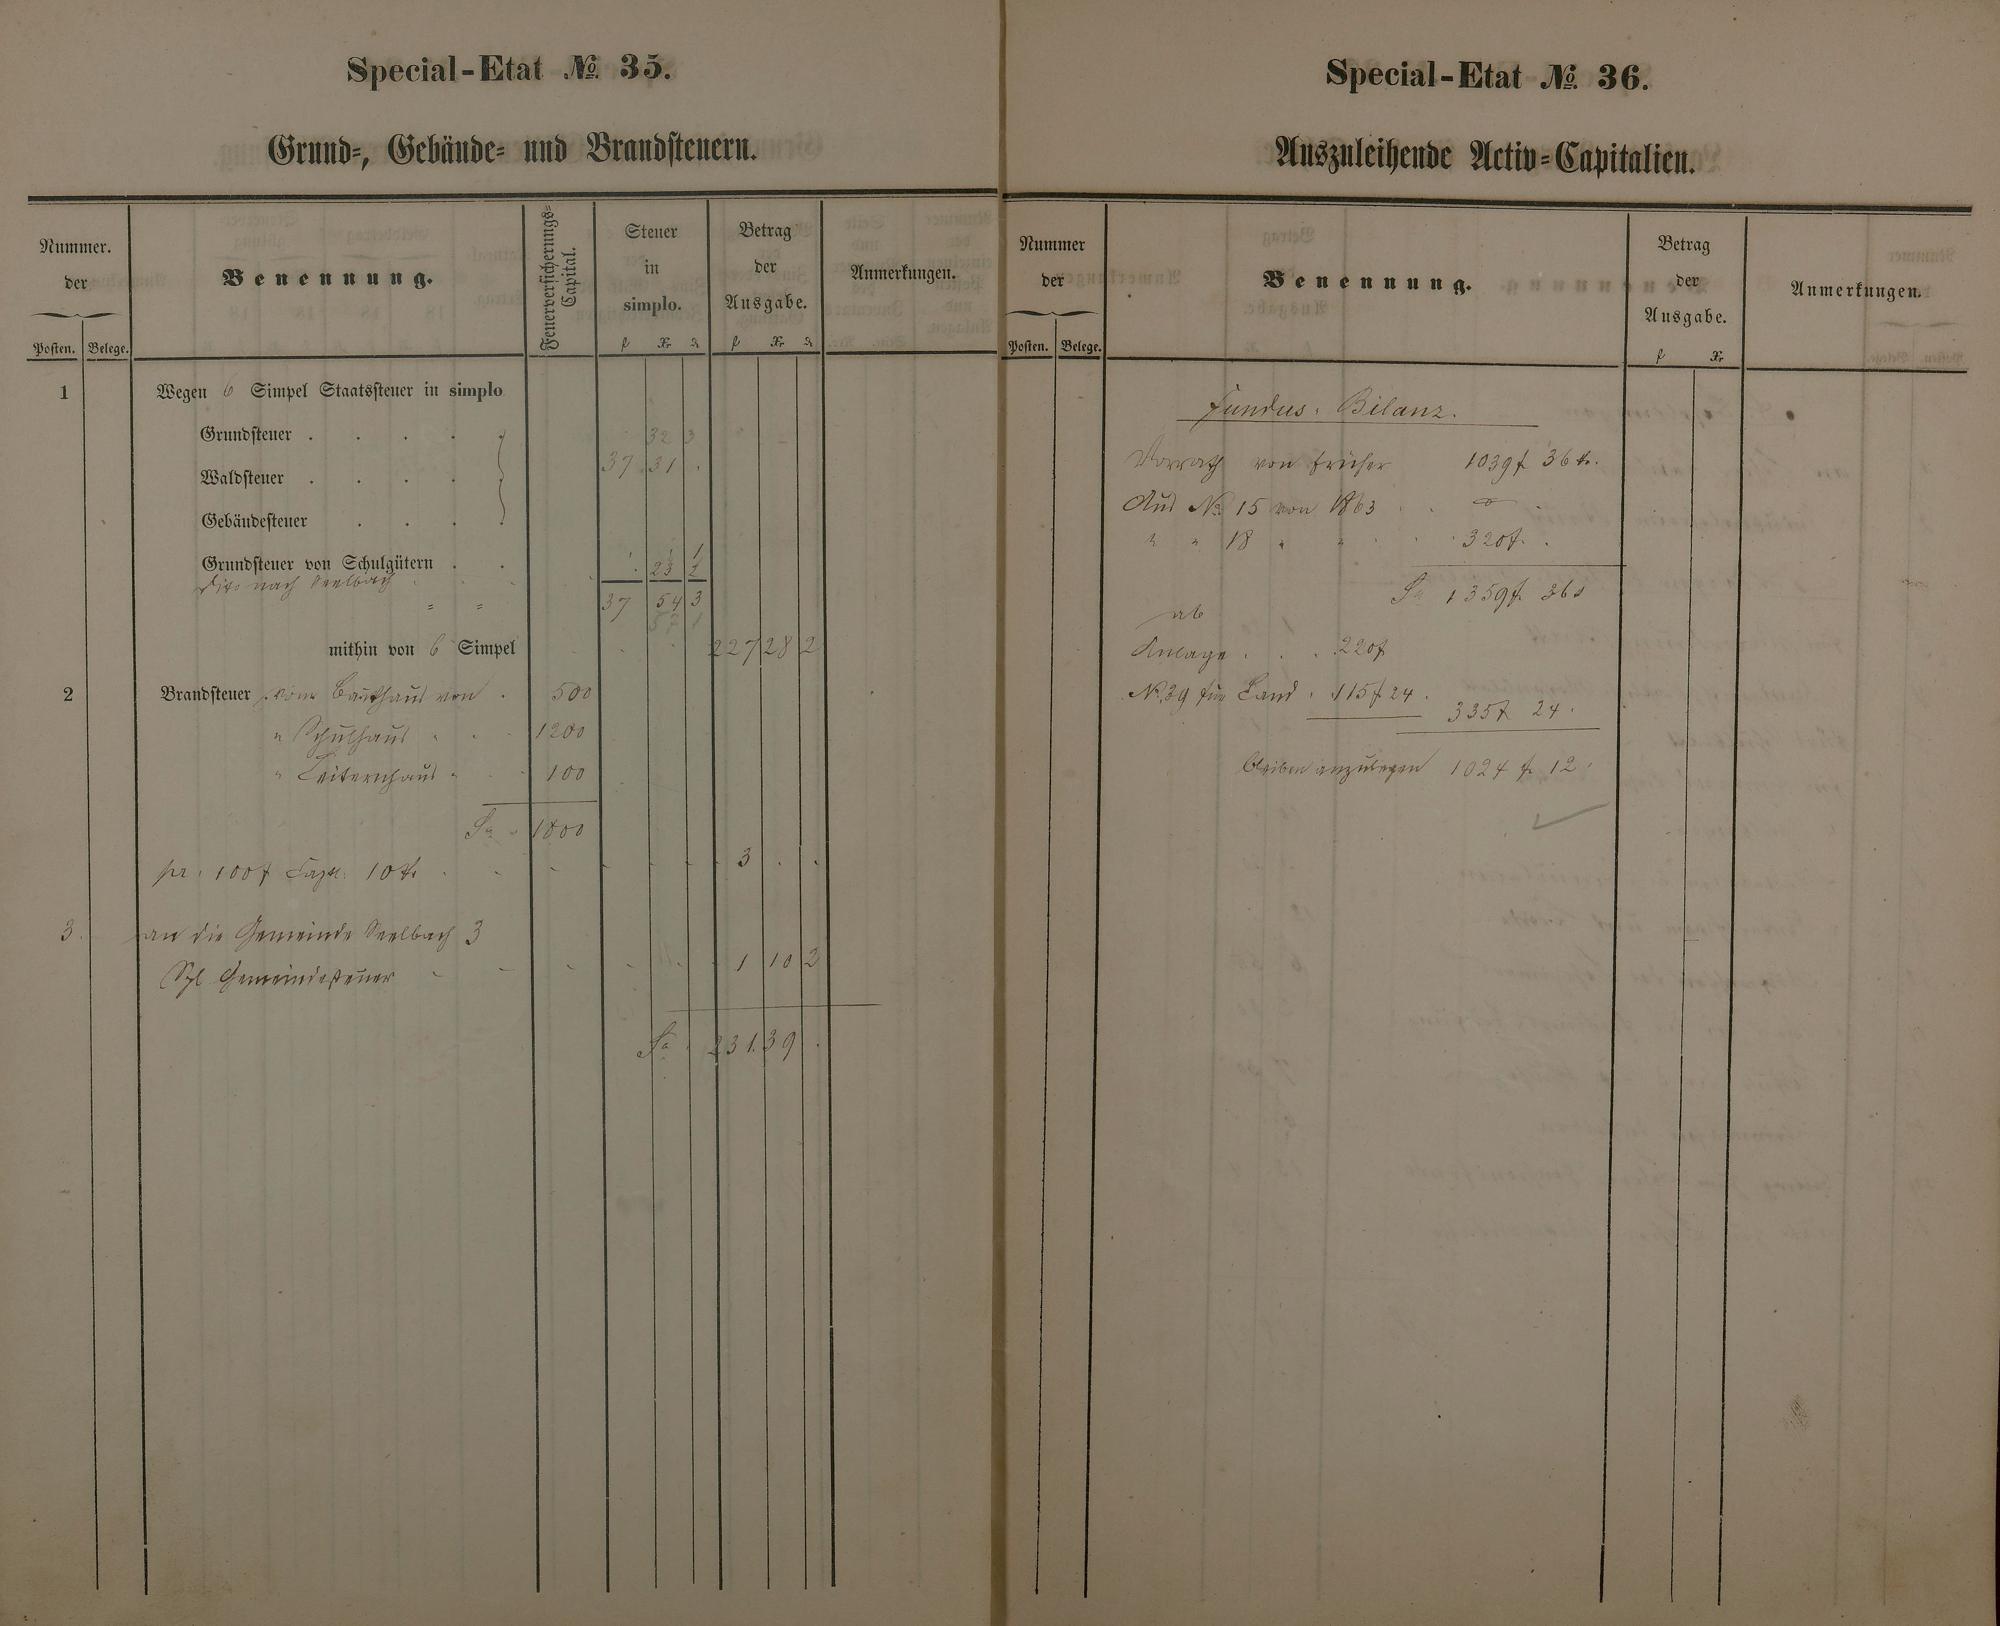 Special-Etat № 35.
Grund-, Gebäude- und Brandsteuern.
Nummer.
der
Posten. Belege.
Benennung.
Feuerversicherungs-
Capital.
Steuer
in
simplo.
f Xr
Betrag
der
Ausgabe.
f Xr
Anmerkungen.
1 Wegen 6 Simpel Staatssteuer in simplo
Grundsteuer . . . . 32 3
37 31 .
Waldsteuer . . . .
Gebäudesteuer . . .
Grundsteuer von Schulgütern . .
Dito nach Seelbach
" " 37 54 3
mithin von 6 Simpel 227 28 2
2 Brandsteuer vom Backhaus von . 500
" Schulhaus " . . 1200
" Leiternhaus " . . 100
Sa 1800
pr. 100f Capt. 10 Xr. 3 . .
3. an die Gemeinde Seelbach 3
Spl Gemeindesteuer 1 10 2
Sa. 231.39 .
Special-Etat № 36.
Auszuleihende Activ-Capitalien.
Nummer
der
Posten. Belege.
Benennung.
Betrag
der
Ausgabe.
f Xr
Anmerkungen.
Fundus. Bilanz.
Vorrath von früher 1039f 36 Xr.
Aus № 15 von 1863 . .
" " 18 " " . . . 320f. .
Sa 1359f. 36
ab
Anlage . . . 220f
№ 39 für Land . 115f 24 .
335f 24 .
bleiben anzulegen 1024 f. 12 .